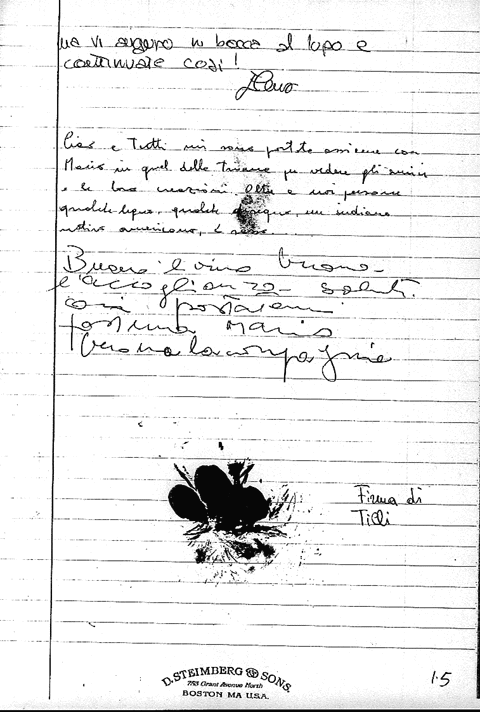 ma vi auguro in bocca al lupo e
continuate così!
Ciao a Tutti mi sono portato assieme con
Mario in quel delle per vedere gli amici
e le loro creazioni. Oltre a noi persone
qualche legno, qualche un indiano
nativo americano, è
Buono il vino buono
l'accoglienza saluti.
fortuna Mario
Verona la compagnie
Firma di
Titti
D. STEIMBERG & SONS.
755 Grant Avenue North
BOSTON MA U.S.A.
15